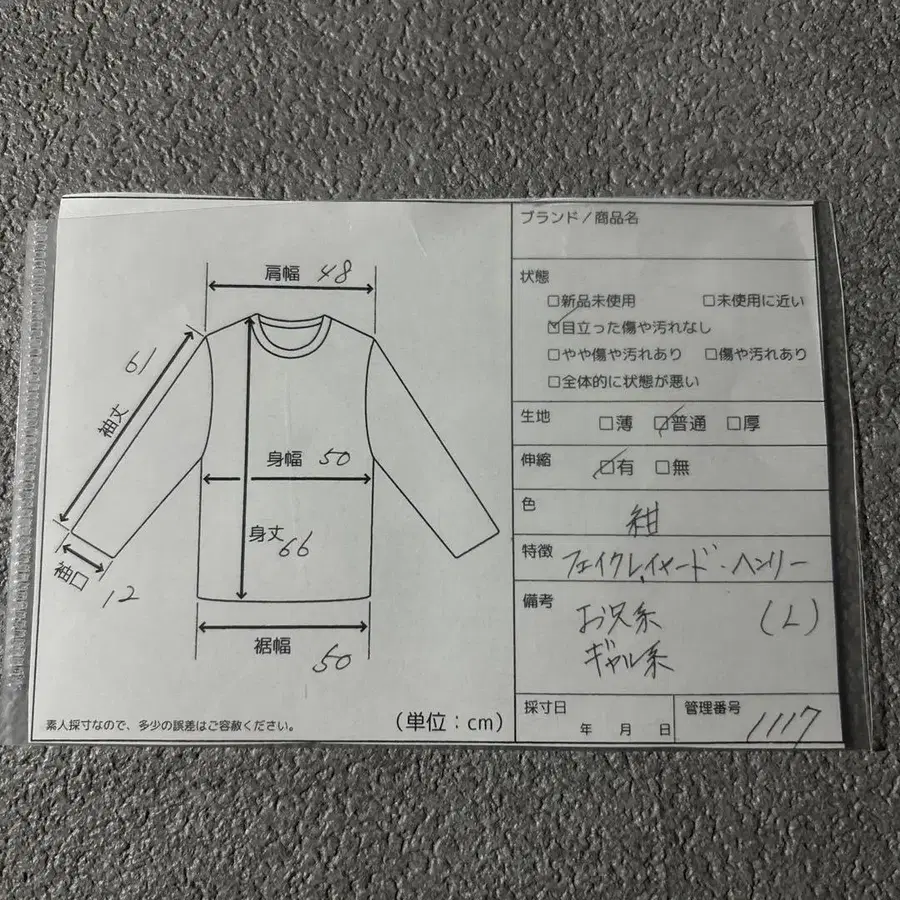 肩幅 48
袖丈 61
身幅 50
身丈 66
袖口 12
裾幅 50
素人採寸なので、多少の誤差はご容赦ください。
(単位：cm)
ブランド/商品名
状態
□新品未使用 □未使用に近い
☑目立った傷や汚れなし
□やや傷や汚れあり □傷や汚れあり
□全体的に状態が悪い
生地 □薄 ☑普通 □厚
伸縮 ☑有 □無
色 紺
特徴 フェイクレイヤード・ヘンリー
備考 お兄系 (L)
ギャル系
採寸日 年 月 日
管理番号 1117